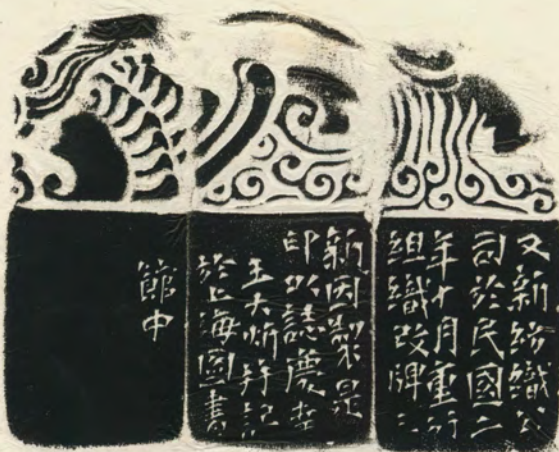 又新紡織公
司於民國二
年十月重行
組織改牌
新因製是
印以誌慶幸
王大炘并記
於上海圖書
館中